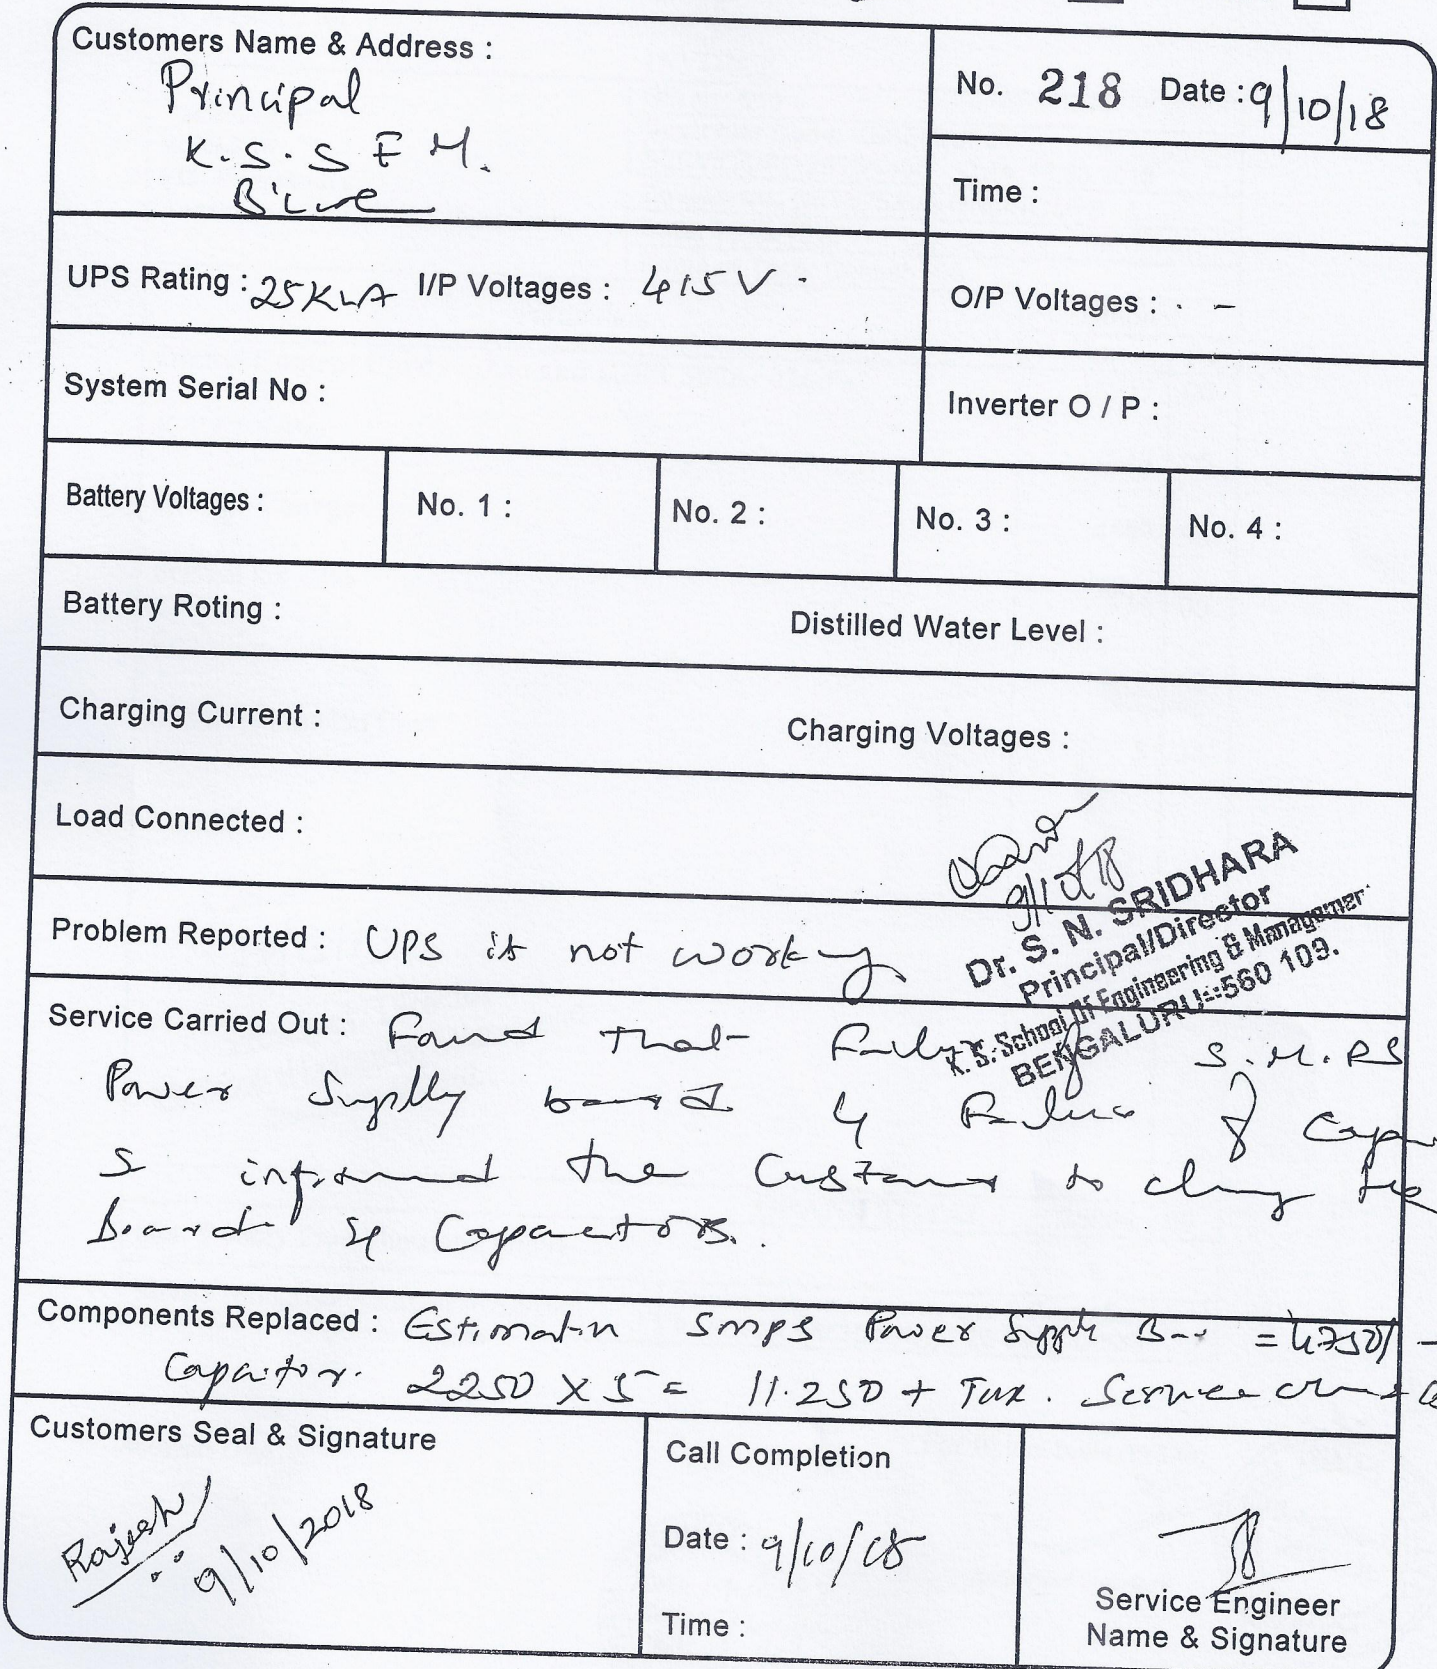 Customers Name & Address :
Principal
K.S.S E M.
B'Lore
No. 218 Date : 9/10/18
Time :
UPS Rating : 25KVA I/P Voltages : 415V.
O/P Voltages : . -
System Serial No :
Inverter O / P :
Battery Voltages : No. 1 : No. 2 : No. 3 : No. 4 :
Battery Roting :
Distilled Water Level :
Charging Current :
Charging Voltages :
Load Connected :
9/10/18
Dr. S. N. SRIDHARA
Principal/Director
K. S. School Of Engineering & Managemen
BENGALURU-560 109.
Problem Reported : UPS is not working.
Service Carried Out : Found that Failure of S.M.PS
Power Supply board & Failure of Capa
informed the Customer to change the
Board & Capacitors.
Components Replaced : Estimation SMPS Power Supply = 4750/-
Capacitor. 2250 X 5 = 11.250 + Tax. Service
Customers Seal & Signature
Rajesh
9/10/2018
Call Completion
Date : 9/10/18
Time :
Service Engineer
Name & Signature